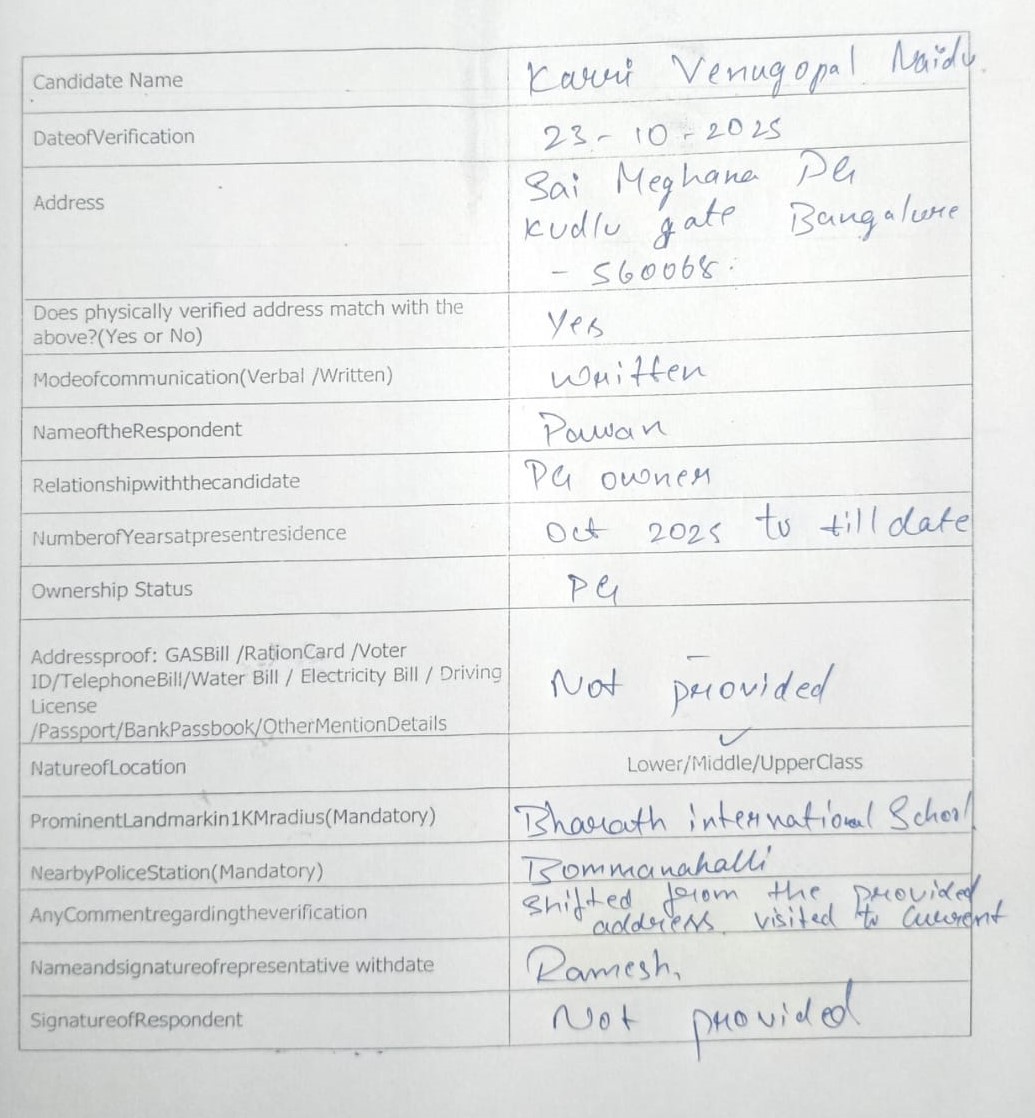 Candidate Name Karri Venugopal Naidu.
DateofVerification 23-10-2025
Address Sai Meghana PG
Kudlu gate Bangalore
- 560068.
Does physically verified address match with the
above?(Yes or No) Yes
Modeofcommunication(Verbal /Written) Written
NameoftheRespondent Pawan
Relationshipwiththecandidate PG owner
NumberofYearsatpresentresidence Oct 2025 to till date
Ownership Status PG
Addressproof: GASBill /RationCard /Voter
ID/TelephoneBill/Water Bill / Electricity Bill / Driving
License
/Passport/BankPassbook/OtherMentionDetails
Not provided
NatureofLocation Lower/Middle/UpperClass
ProminentLandmarkin1KMradius(Mandatory) Bharath international School
NearbyPoliceStation(Mandatory) Bommanahalli
AnyCommentregardingtheverification Shifted from the provided
address. visited to Current
Nameandsignatureofrepresentative withdate Ramesh,
SignatureofRespondent Not provided